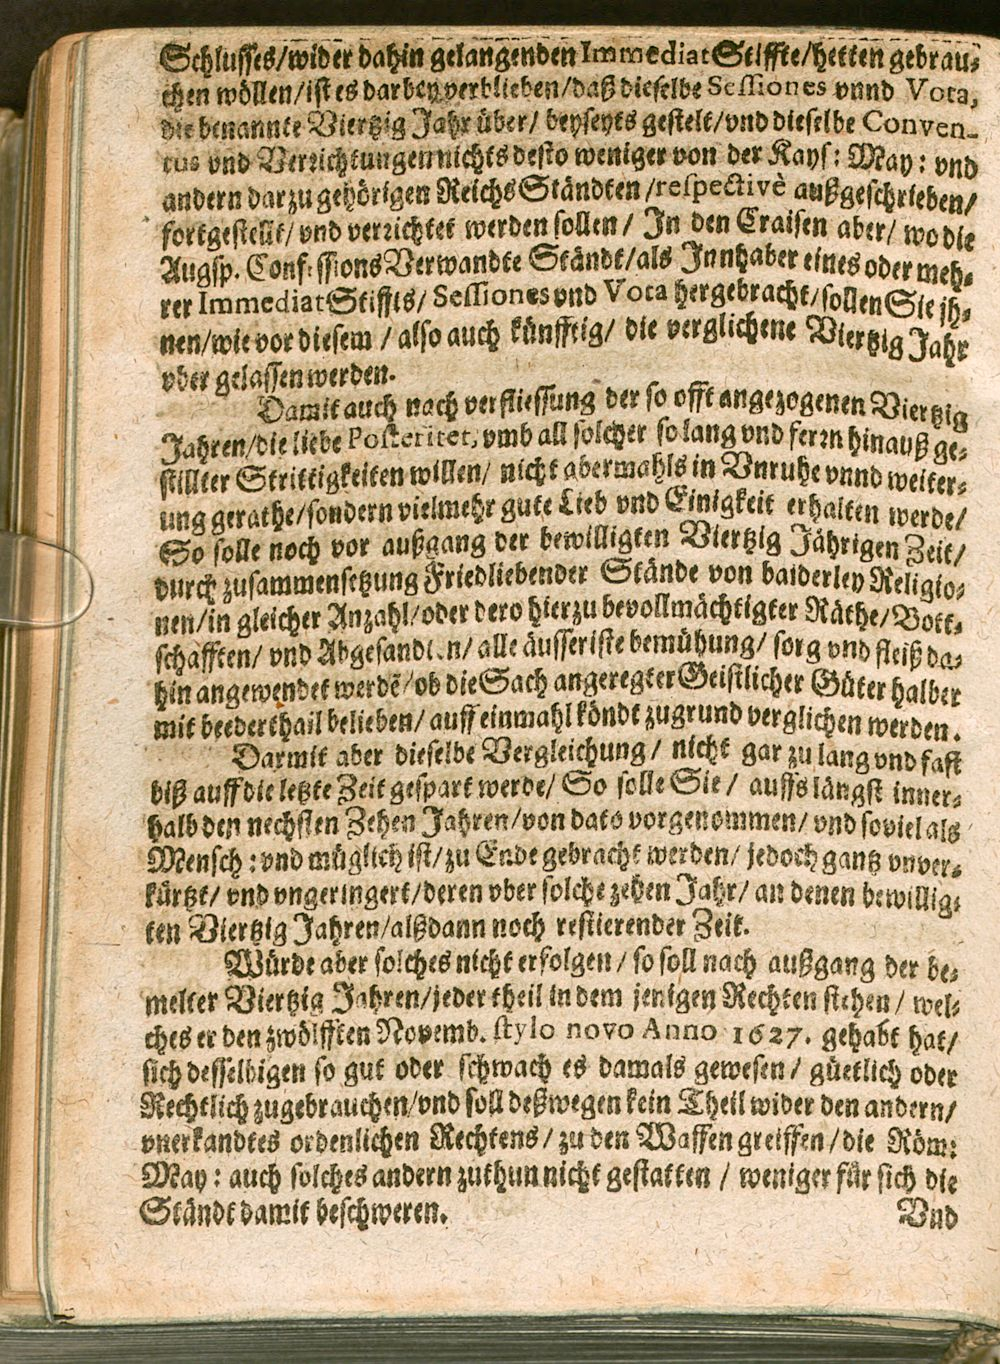 Schlusses/wider dahin gelangenden Immediat Stiffte/hetten gebrau-
chen wöllen/ist es darbey verblieben/daß dieselbe Sessiones vnnd Vota,
die benannte Viertzig Jahr über/ beyseyts gestelt/vnd dieselbe Conven-
tus vnd Verrichtungen nichts desto weniger von der Kays: May: vnd
andern darzu gehörigen Reichs Ständten /respectivè außgeschrieben/
fortgestellt/ vnd verrichtet werden sollen/ In den Craisen aber/ wo die
Augsp. Confessions Verwandte Ständt/als Innhaber eines oder meh-
rer Immediat Stiffts/ Sessiones vnd Vota hergebracht/sollen Sie jh-
nen/wie vor diesem / also auch künfftig/ die verglichene Viertzig Jahr
vber gelassen werden.
Damit auch nach verfliessung der so offt angezogenen Viertzig
Jahren/die liebe Posteritet, vmb all solcher so lang vnd ferrn hinauß ge-
stillter Strittigkeiten willen/ nicht abermahls in Vnruhe vnnd weiter-
ung gerathe/sondern vielmehr gute Lieb vnd Einigkeit erhalten werde/
So solle noch vor außgang der bewilligten Viertzig Jährigen Zeit/
durch zusammensetzung Friedliebender Stände von baiderley Religio-
nen/in gleicher Anzahl/oder dero hierzu bevollmächtigter Räthe/Bott-
schafften/ vnd Abgesandten/ alle äusseriste bemühung/ sorg vnd fleiß da-
hin angewendet werdē/ob die Sach angeregter Geistlicher Güter halber
mit beederthail belieben/ auff einmahl köndt zugrund verglichen werden.
Darmit aber dieselbe Vergleichung/ nicht gar zu lang vnd fast
biß auff die letzte Zeit gespart werde/ So solle Sie / auffs längst inner-
halb den nechsten Zehen Jahren/von dato vorgenommen/ vnd soviel als
Mensch: vnd müglich ist/zu Ende gebracht werden/ jedoch gantz vnver-
kürtzt/ vnd vngeringert/deren vber solche zehen Jahr/ an denen bewillig-
ten Viertzig Jahren/alßdann noch restierender Zeit.
Würde aber solches nicht erfolgen/ so soll nach außgang der be-
melter Viertzig Jahren/jeder theil in dem jenigen Rechten stehen/ wel-
ches er den zwölfften Novemb. stylo novo Anno 1627. gehabt hat/
sich desselbigen so gut oder schwach es damals gewesen/ güetlich oder
Rechtlich zugebrauchen/vnd soll deßwegen kein Theil wider den andern/
vnerkandtes ordenlichen Rechtens/ zu den Waffen greiffen/die Röm:
May: auch solches andern zuthun nicht gestatten / weniger für sich die
Ständt damit beschweren.
Vnd